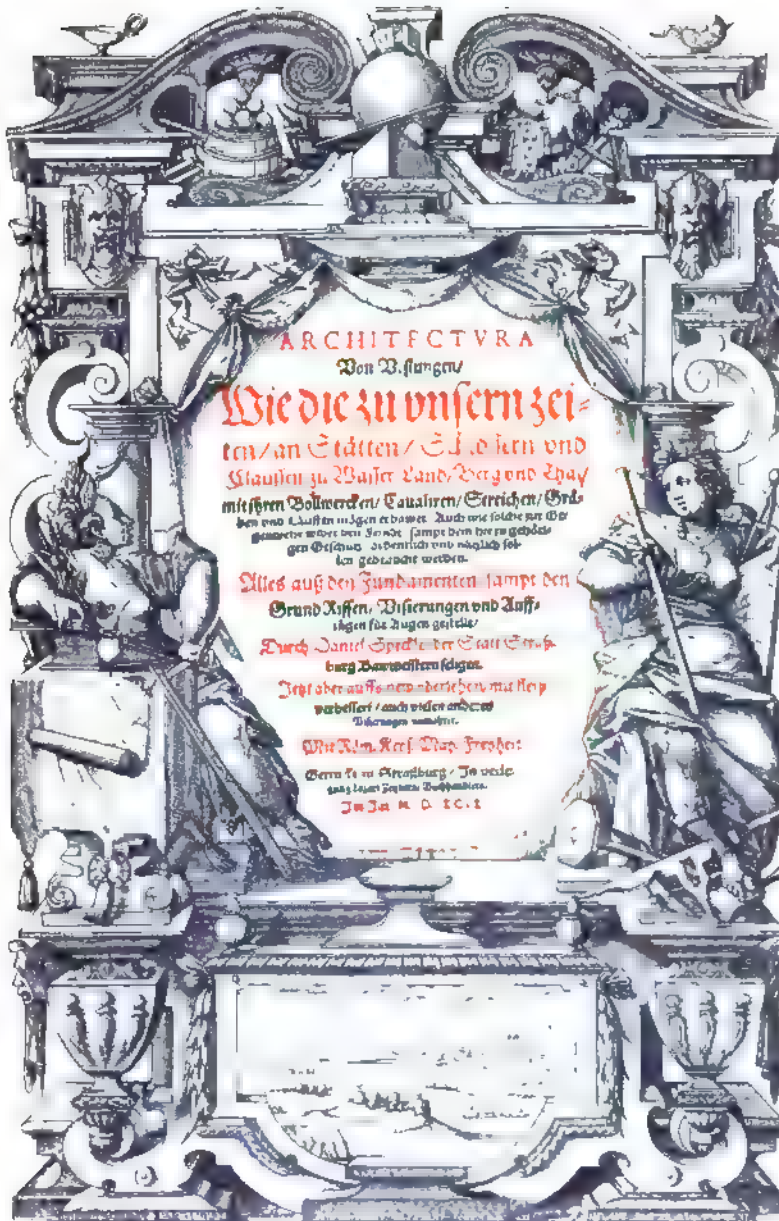 ARCHITECTVRA
Von Vestungen/
Wie die zu vnsern zei-
ten/an Stätten/Schlössern vnd
Claussen zu Wasser Land/Berg vnd Thal/
mit ihren Bollwercken/Caualiren/Streichen/Grä-
ben vnd Läuffen mögen erbawet. Auch wie solche zur Ge-
genwehr wider den Feindt sampt dem darzu gehöri-
gen Geschütz ordenlich vnd nützlich sol-
len gebraucht werden.
Alles auß den Fundamenten sampt den
Grund Rissen, Visierungen vnd Auff-
zügen für Augen gestellt/
Durch Daniel Speckle der Statt Straß-
burg Bawmeistern seligen.
Jetzt aber auffs new vbersehen mit fleiß
verbessert/auch vielen anderen
Visierungen vermehrt.
Mit Röm. Keys. May. Freyheit
Getruckt zu Straßburg, In verle-
gung Lazari Zetzners Buchhändlers.
Im Jar M D XC